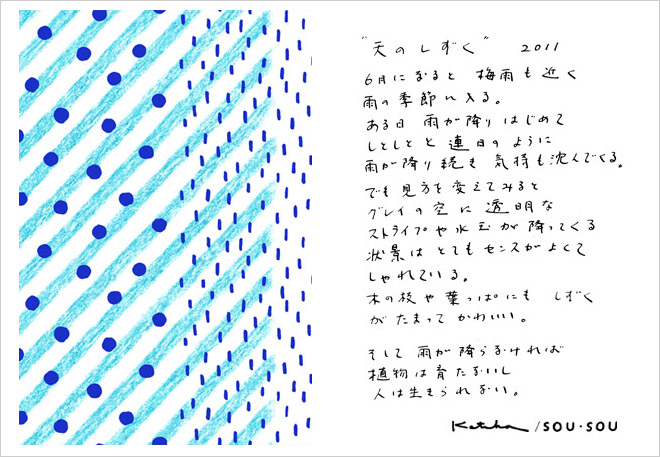 "天のしずく" 2011
6月になると 梅雨も近く
雨の季節に入る。
ある日 雨が降りはじめて
しとしとと 連日のように
雨が降り続き 気持も沈んでくる。
でも見方を変えてみると
グレイの空に 透明な
ストライプや水玉が降ってくる
状景は とてもセンスがよくて
しゃれている。
木の枝や葉っぱにも しずく
がたまって かわいい。
そして 雨が降らなければ
植物は育たないし
人は生きられない。
Katsuji / SOU・SOU